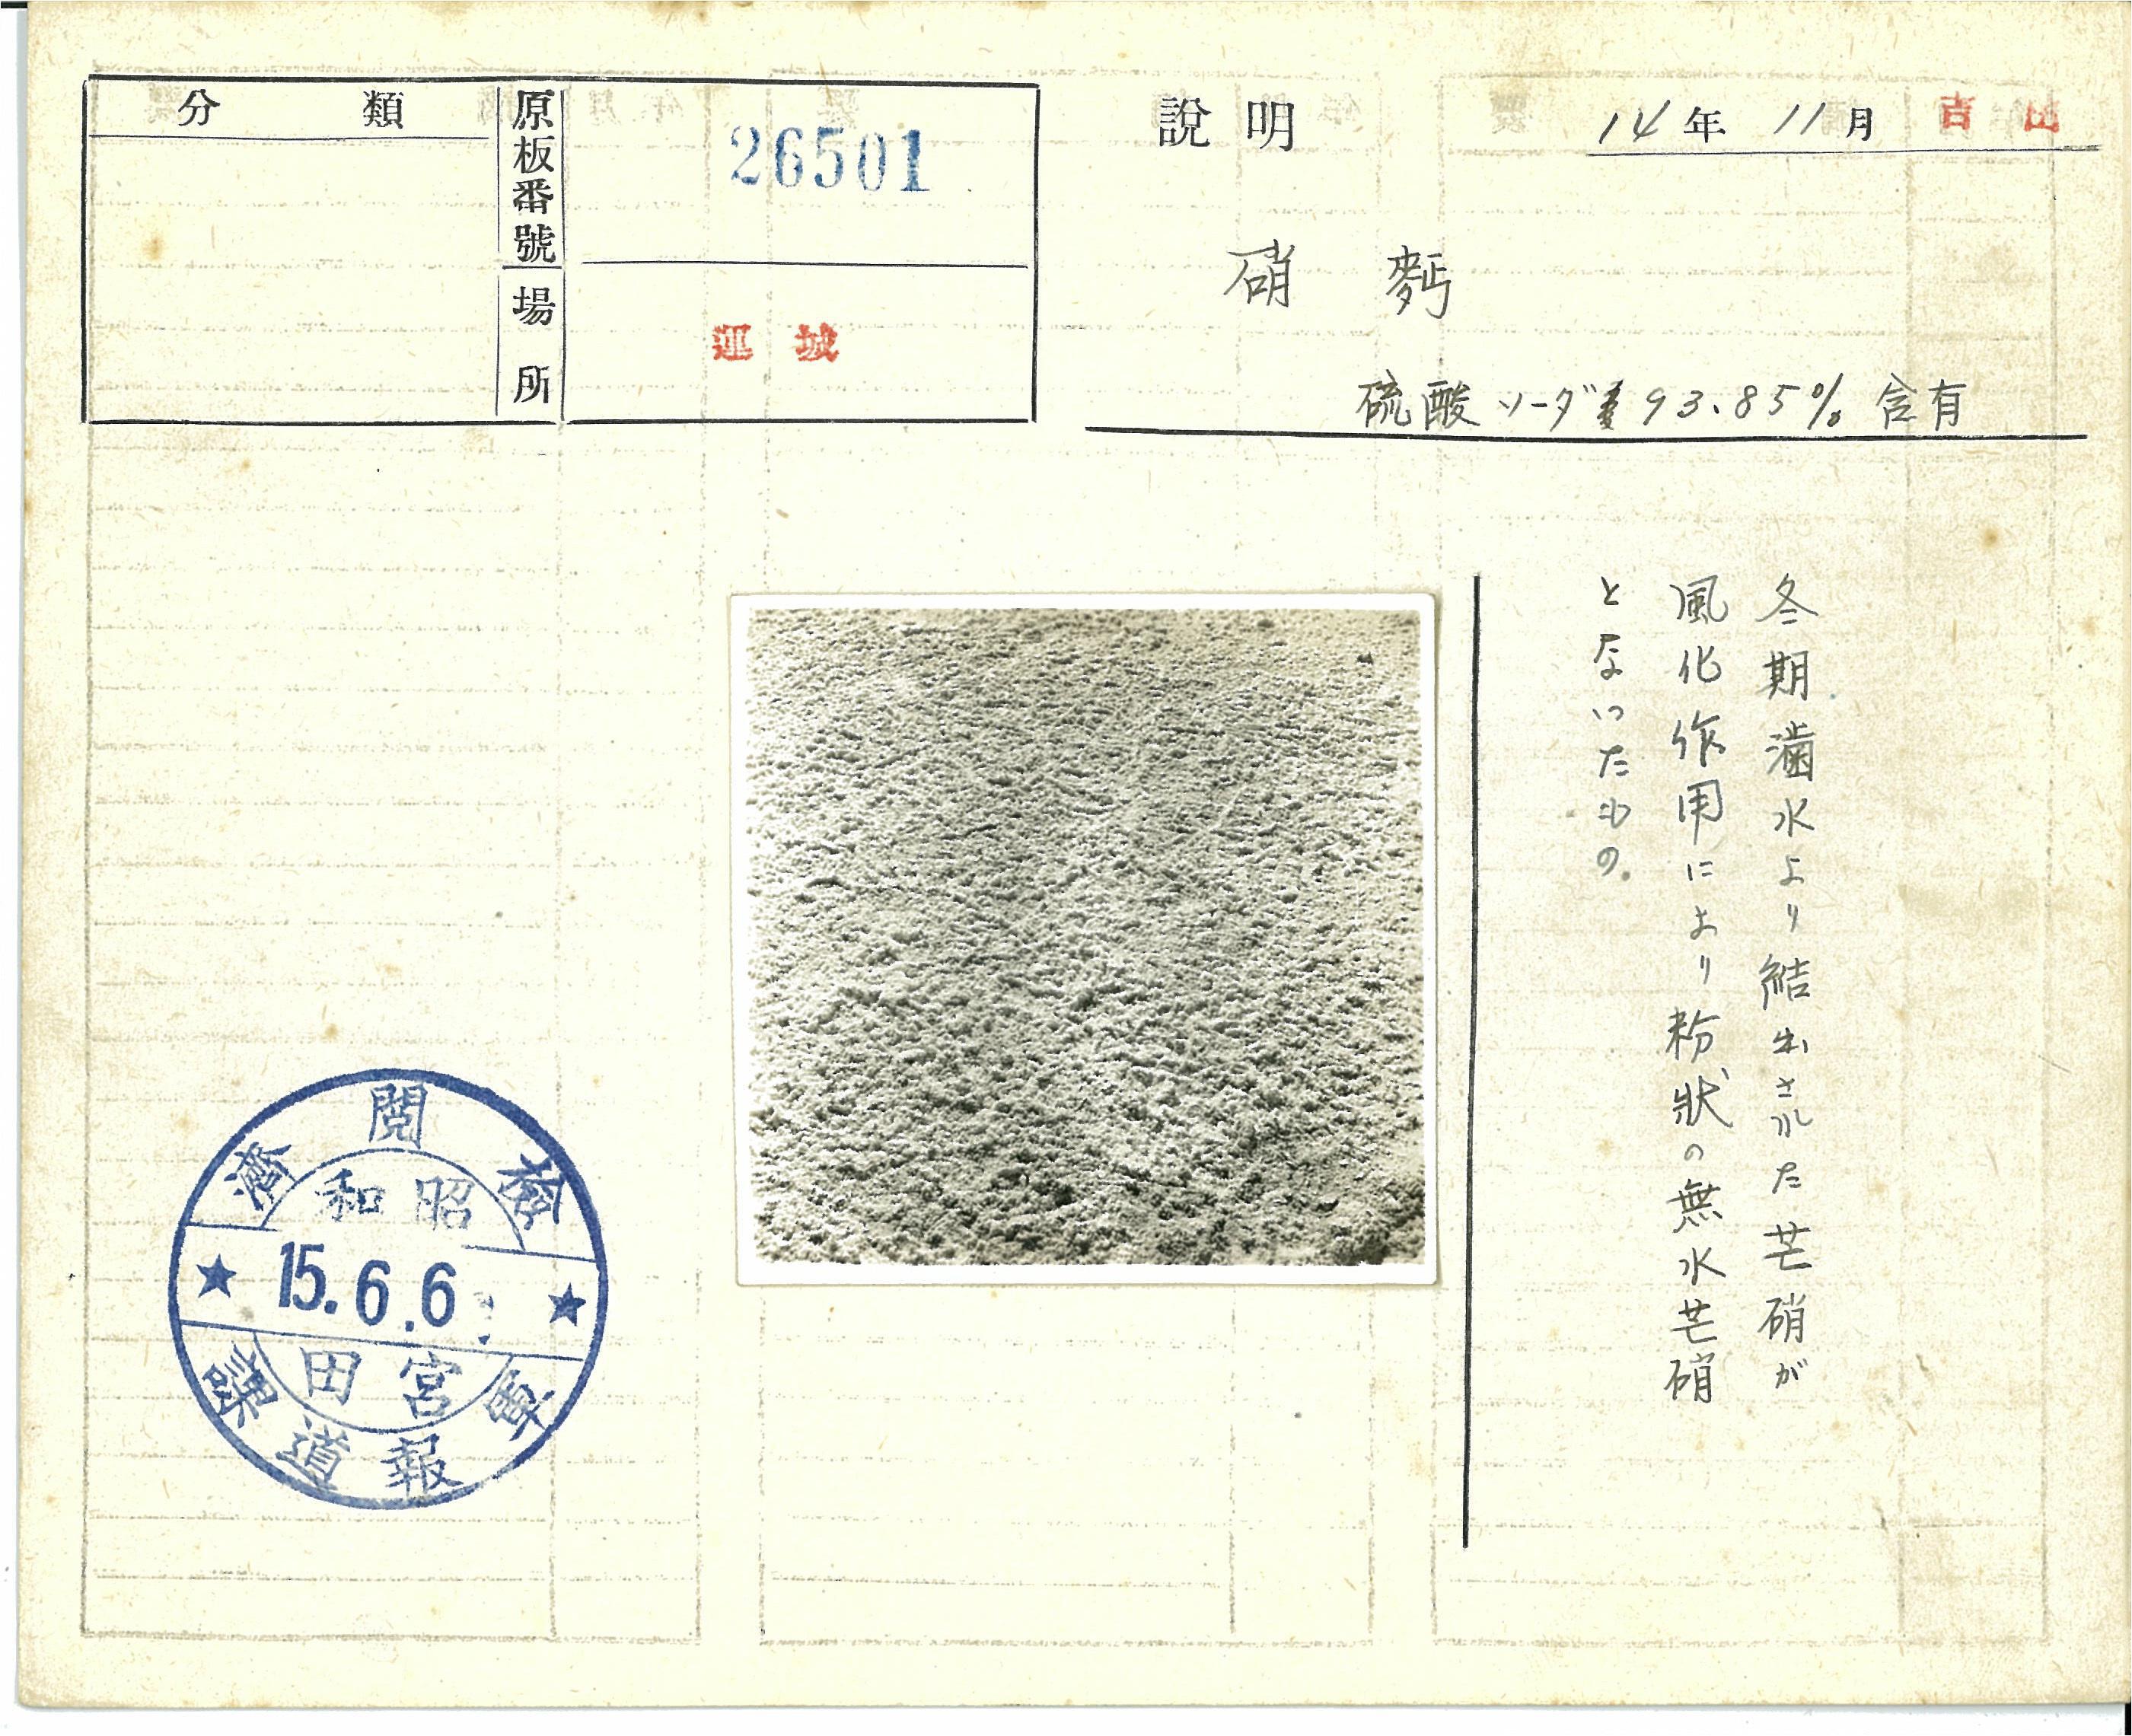 分類
原板番號
26501
場所
運城
說明
14年 11月 吉山
硝 麪
硫酸ソーダ 93.85% 含有
冬期滷水より結出された芒硝が
風化作用により粉狀の無水芒硝
となつたもの。
檢閲濟
昭和
★ 15.6.6. ★
宮田
軍報道課